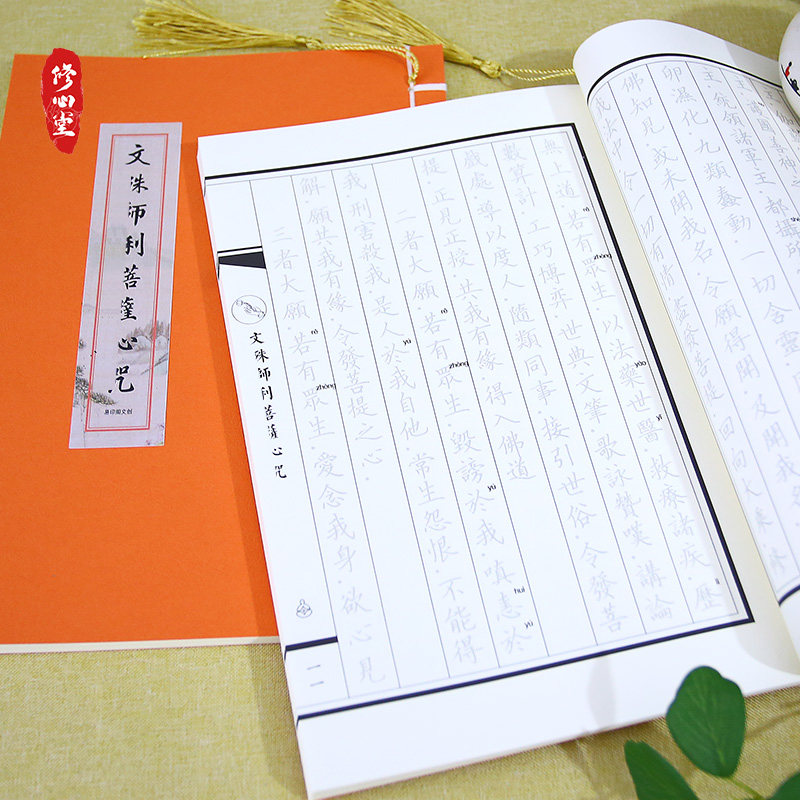 修心堂
文殊师利菩薩心咒
易印阁文创
卵濕化．九類蠢動．一切含靈
佛知見．或未聞我名．令願得聞．及聞我名
無上道．若有眾生．以法藥世醫．救療諸疾．歷
zhòng
yào
yī
lì
數算計．工巧博弈．世典文筆．歌詠贊嘆．講論
戲處．導以度人．隨類同事．接引世俗．令發菩
提．正見正授．共我有緣．得入佛道
二者大願．若有眾生．毀謗於我．嗔恚於
zhòng
yú
huì
yú
我．刑害殺我．是人於我自他．常生怨恨．不能得
yú
解．願共我有緣．令發菩提之心．
三者大願．若有眾生．愛念我身．欲心見
zhòng
文殊师利菩薩心咒
一一